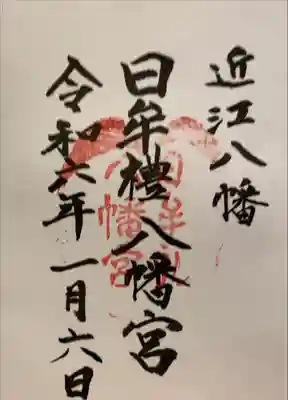 近江八幡
日牟禮八幡宮
令和六年一月六日